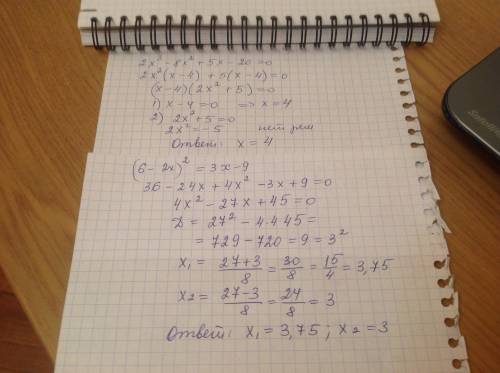 2x³ - 8x² + 5x - 20 = 0
2x²(x-4) + 5(x-4) = 0
(x-4)(2x²+5) = 0
1) x-4 = 0 => x = 4
2) 2x²+5 = 0
2x² = -5 нет реш
Ответ: x = 4
(6-2x)² = 3x-9
36 - 24x + 4x² - 3x + 9 = 0
4x² - 27x + 45 = 0
D = 27² - 4·4·45 =
= 729 - 720 = 9 = 3²
x₁ = (27+3)/8 = 30/8 = 15/4 = 3,75
x₂ = (27-3)/8 = 24/8 = 3
Ответ: x₁ = 3,75; x₂ = 3